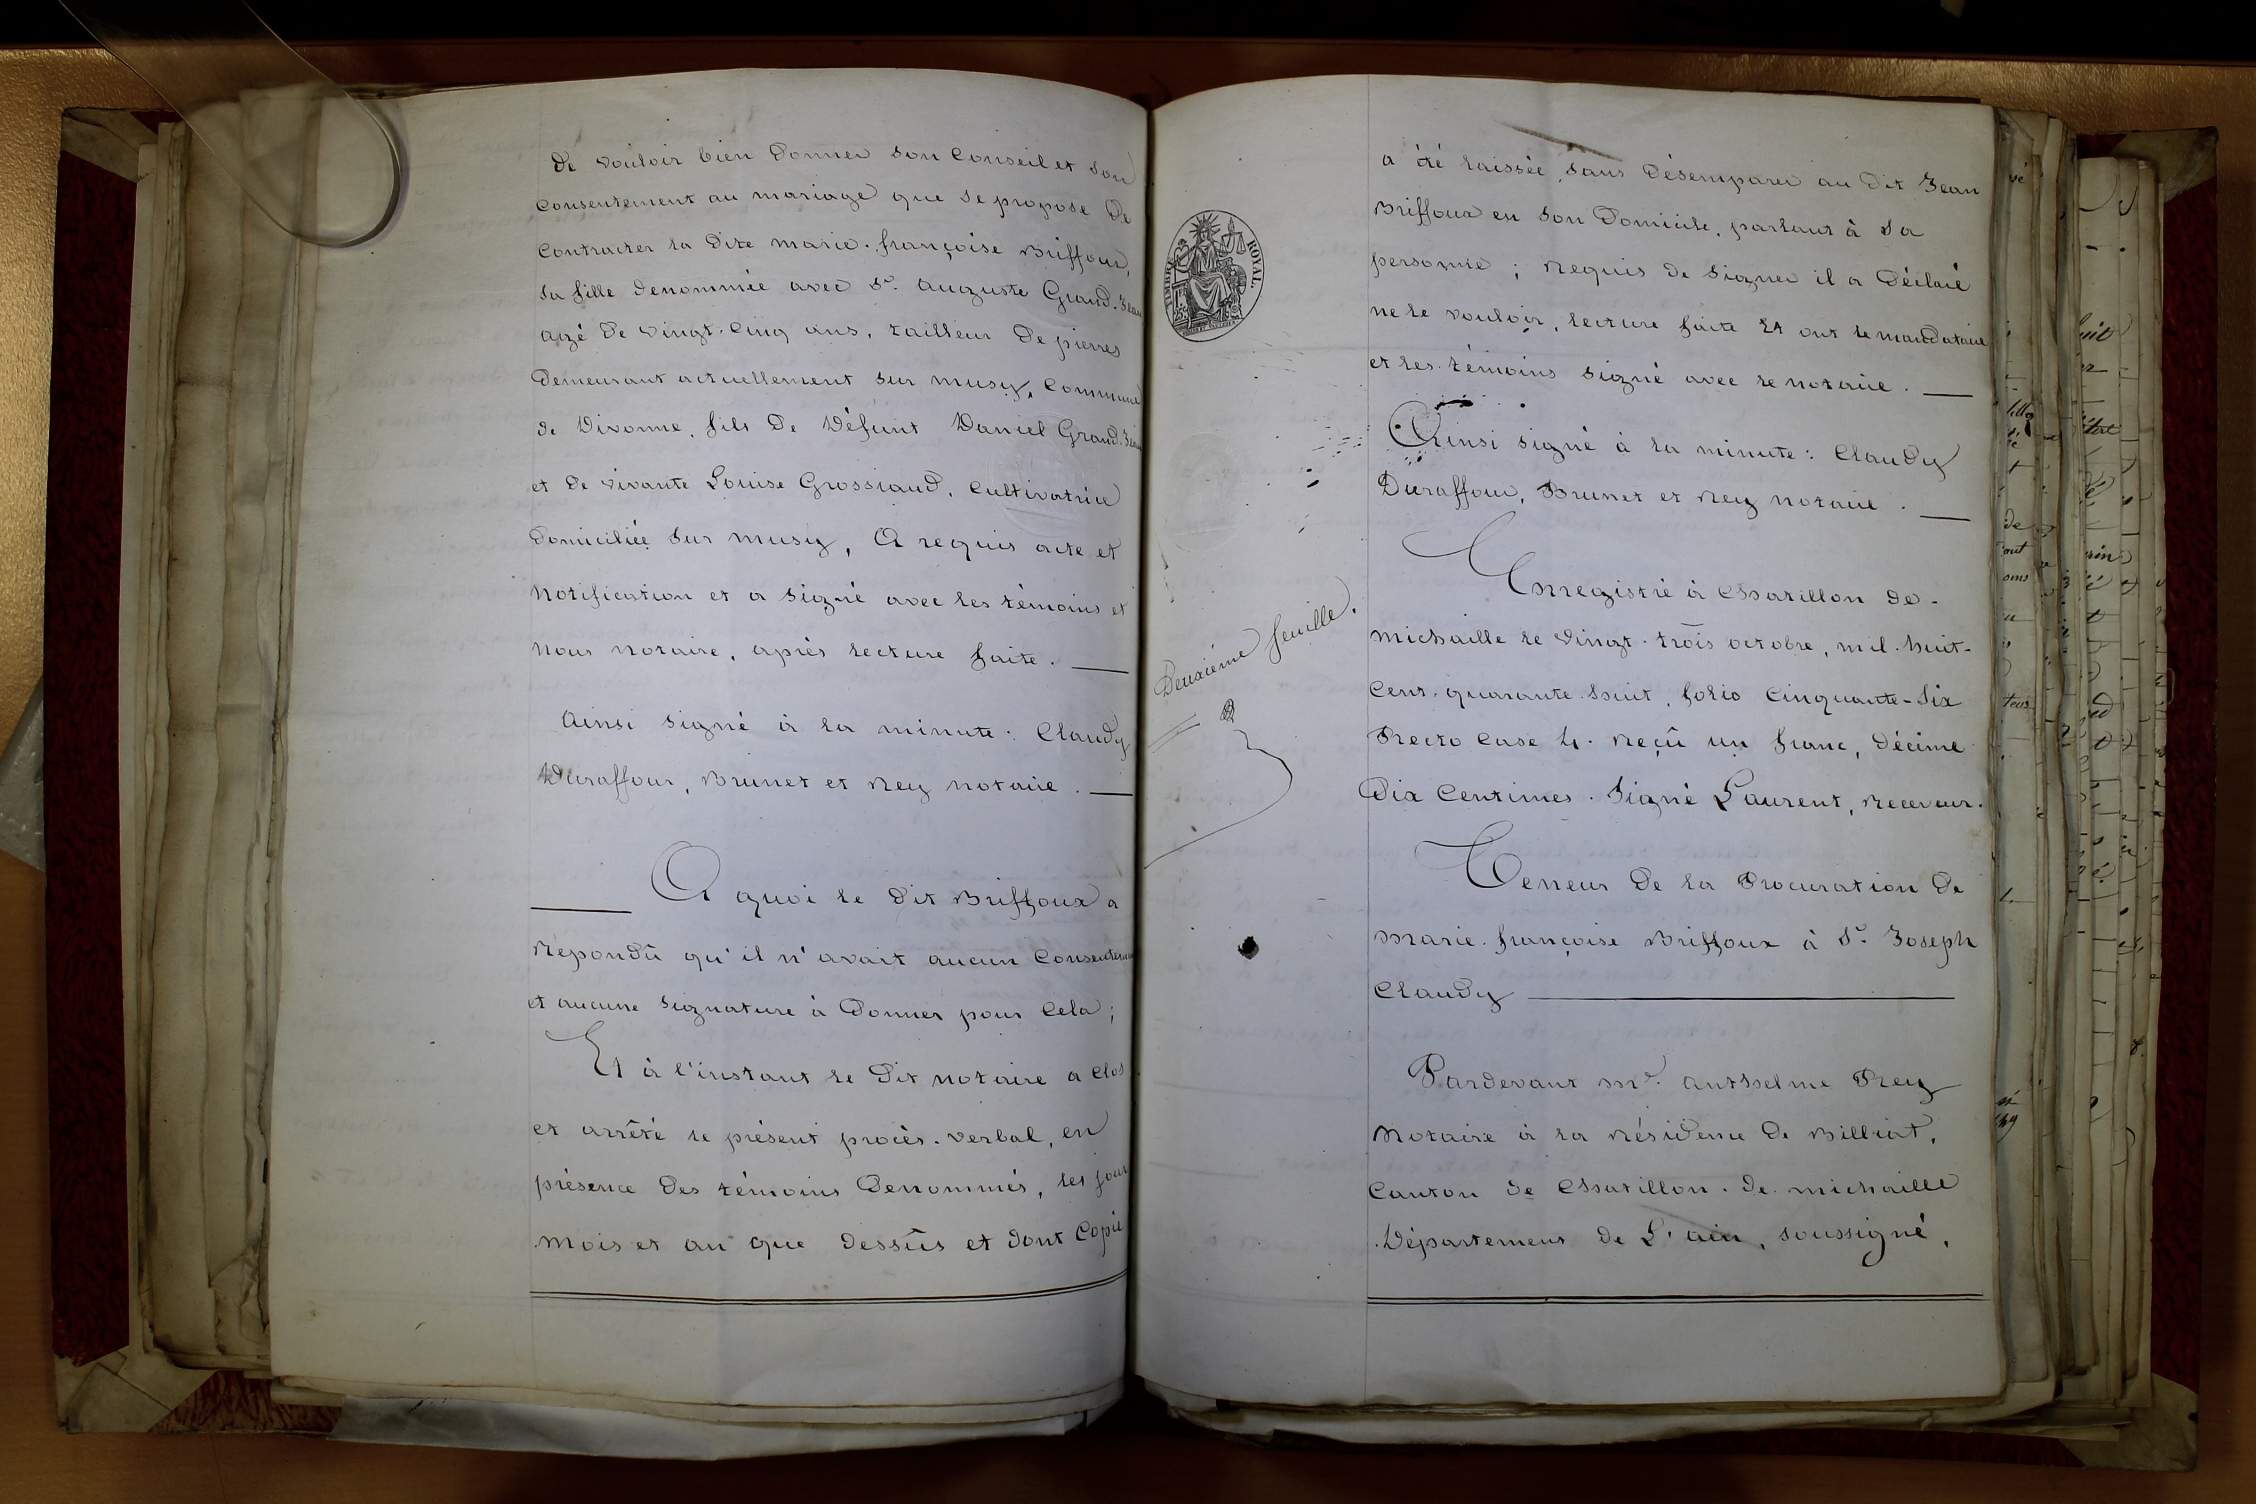 de vouloir bien donner son Conseil et son
consentement au mariage que se propose de
contracter la dite marie-françoise Briffoux,
sa fille denommée avec Sr. auguste Grand-Jean
agé de vingt-cinq ans, tailleur de pierres
demeurant actuellement sur musy, Commune
de Divonne, fils de Défunt Daniel Grand-Jean
et de vivante Louise Grossiaud, cultivatrice
domiciliée sur musy, A requis acte et
notification et a signé avec les témoins et
nous notaire, après lecture faite.
Ainsi signé à la minute: Claudy
Duraffour, Brunet et Rey notaire.
A quoi le dit Briffoux a
répondû qu'il n'avait aucun Consentement
et aucune signature à Donner pour Cela;
Et à l'instant le dit notaire a clos
et arrêté le présent procès-verbal, en
présence des témoins denommés, les jour
mois et an que dessûs et dont Copie
TIMBRE ROYAL.
Deuxième feuille.
a été laissée, sans désemparer au dit Jean
Briffoux en son Domicile, parlant à sa
personne; requis de signer il a déclaré
ne le vouloir, lecture faite Et ont le mandataire
et les témoins signé avec le notaire.
Ainsi signé à la minute: Claudy
Duraffour, Brunet et Rey notaire.
Enregistré à Chatillon de-
michaille le vingt-trois octobre, mil-huit-
cent-quarante-huit, folio cinquante-six
Recto Case 4. reçû un franc, décime
Dix Centimes. Signé Laurent, receveur.
Teneur de la Procuration de
Marie-françoise Briffoux à Sr. Joseph
Claudy
Pardevant me. anthelme Rey
Notaire à la résidence de Billiat,
Canton de Chatillon-de-michaille
Département de L'ain, soussigné,